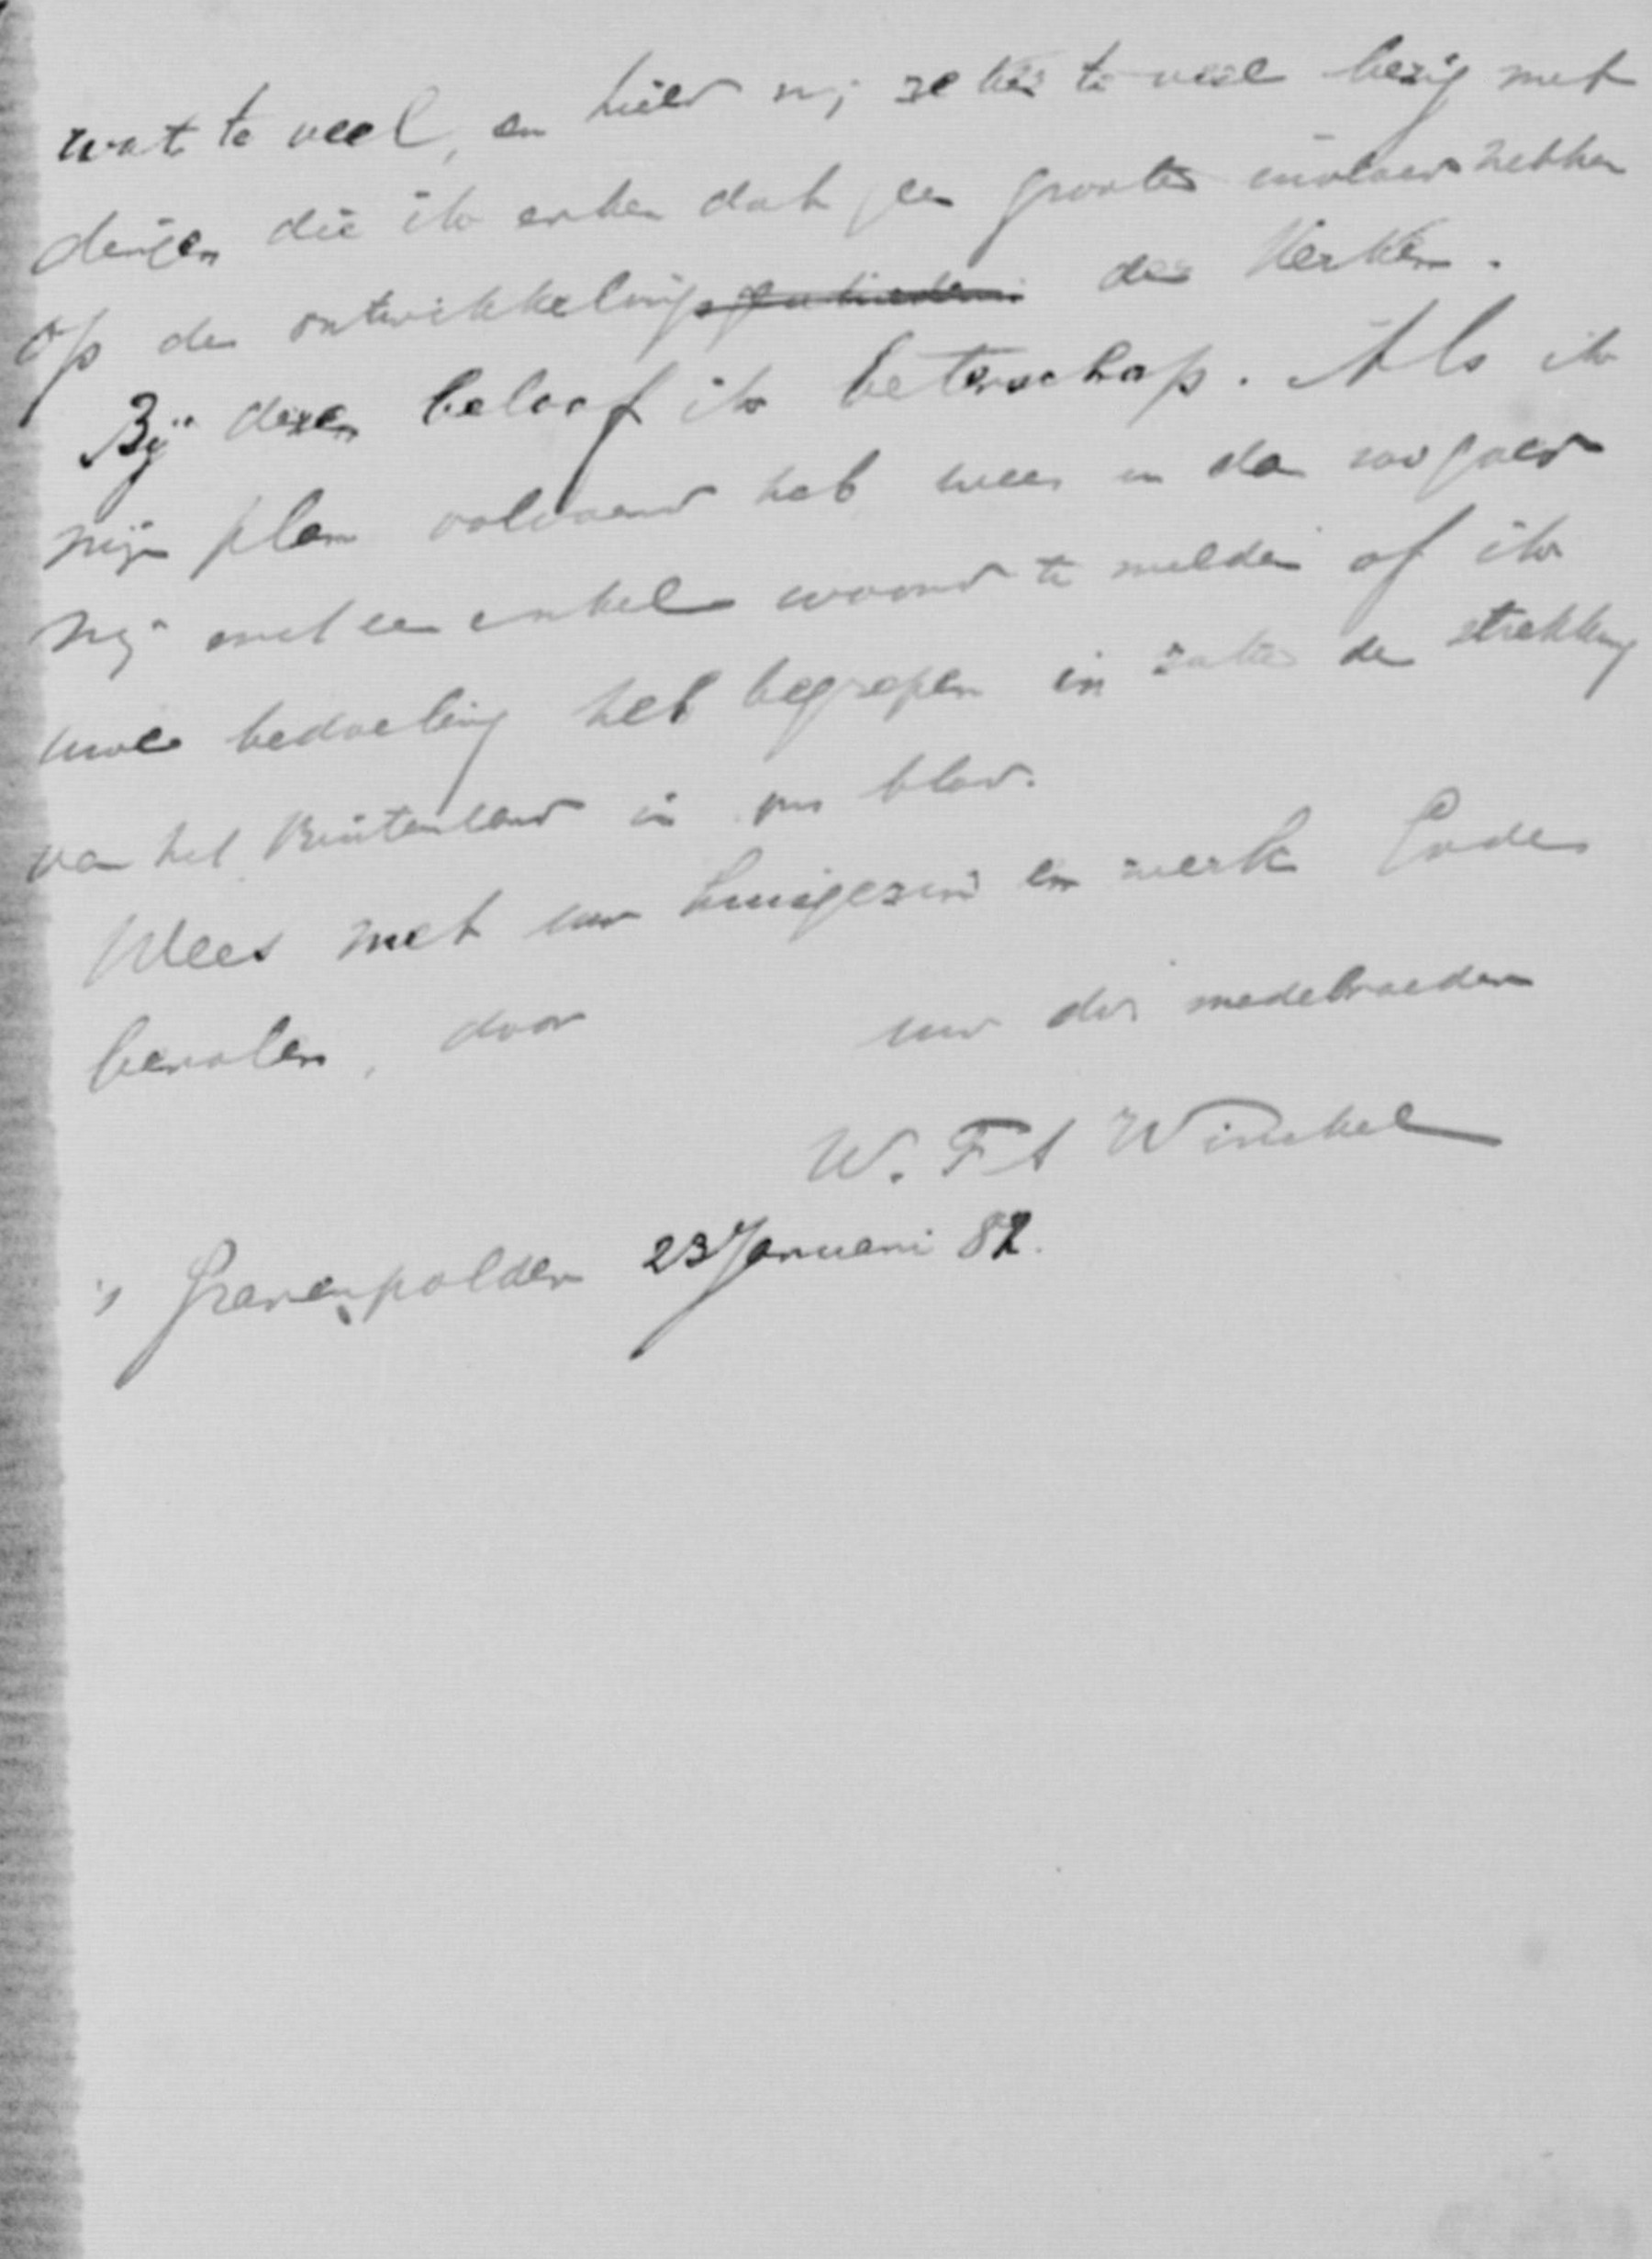 wat te veel, en hield mij zeker te veel bezig met
dingen die ik erken dat geen grooten invloed hebben
op de ontwikkelings geschiedenis der Kerken.
Bij dezen beloof ik beterschap. Als ik
mijn plan volvoerd heb wees u dan zoo goed
mij met een enkel woord te melden of ik
uwe bedoeling heb begrepen in zake de strekking
van het Buitenland in ons blad.
Wees met uw huisgezin en werk Gode
bevolen, door
uw dw medebroeder
W. F A Winckel
's Gravenpolder 23 Januari 82.